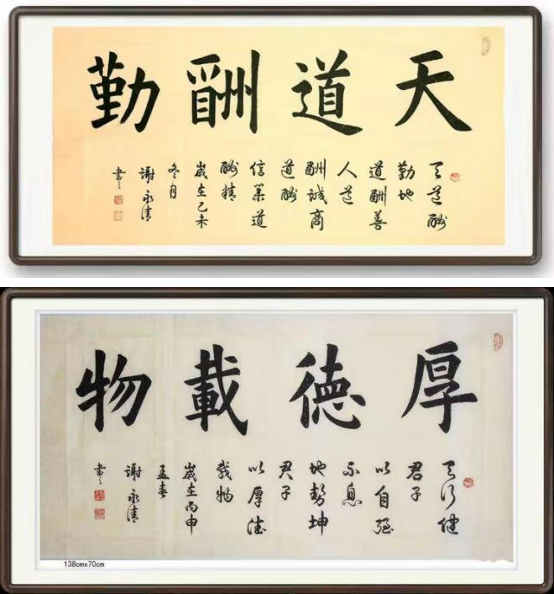 天道酬勤
天道酬
勤地
道酬善
人道
酬誠商
道酬
信業道
酬精
歲在己未
冬月
謝永清
書
厚德載物
天行健
君子
以自强
不息
地勢坤
君子
以厚德
載物
歲在丙申
孟春
謝永清
書
138cmx70cm